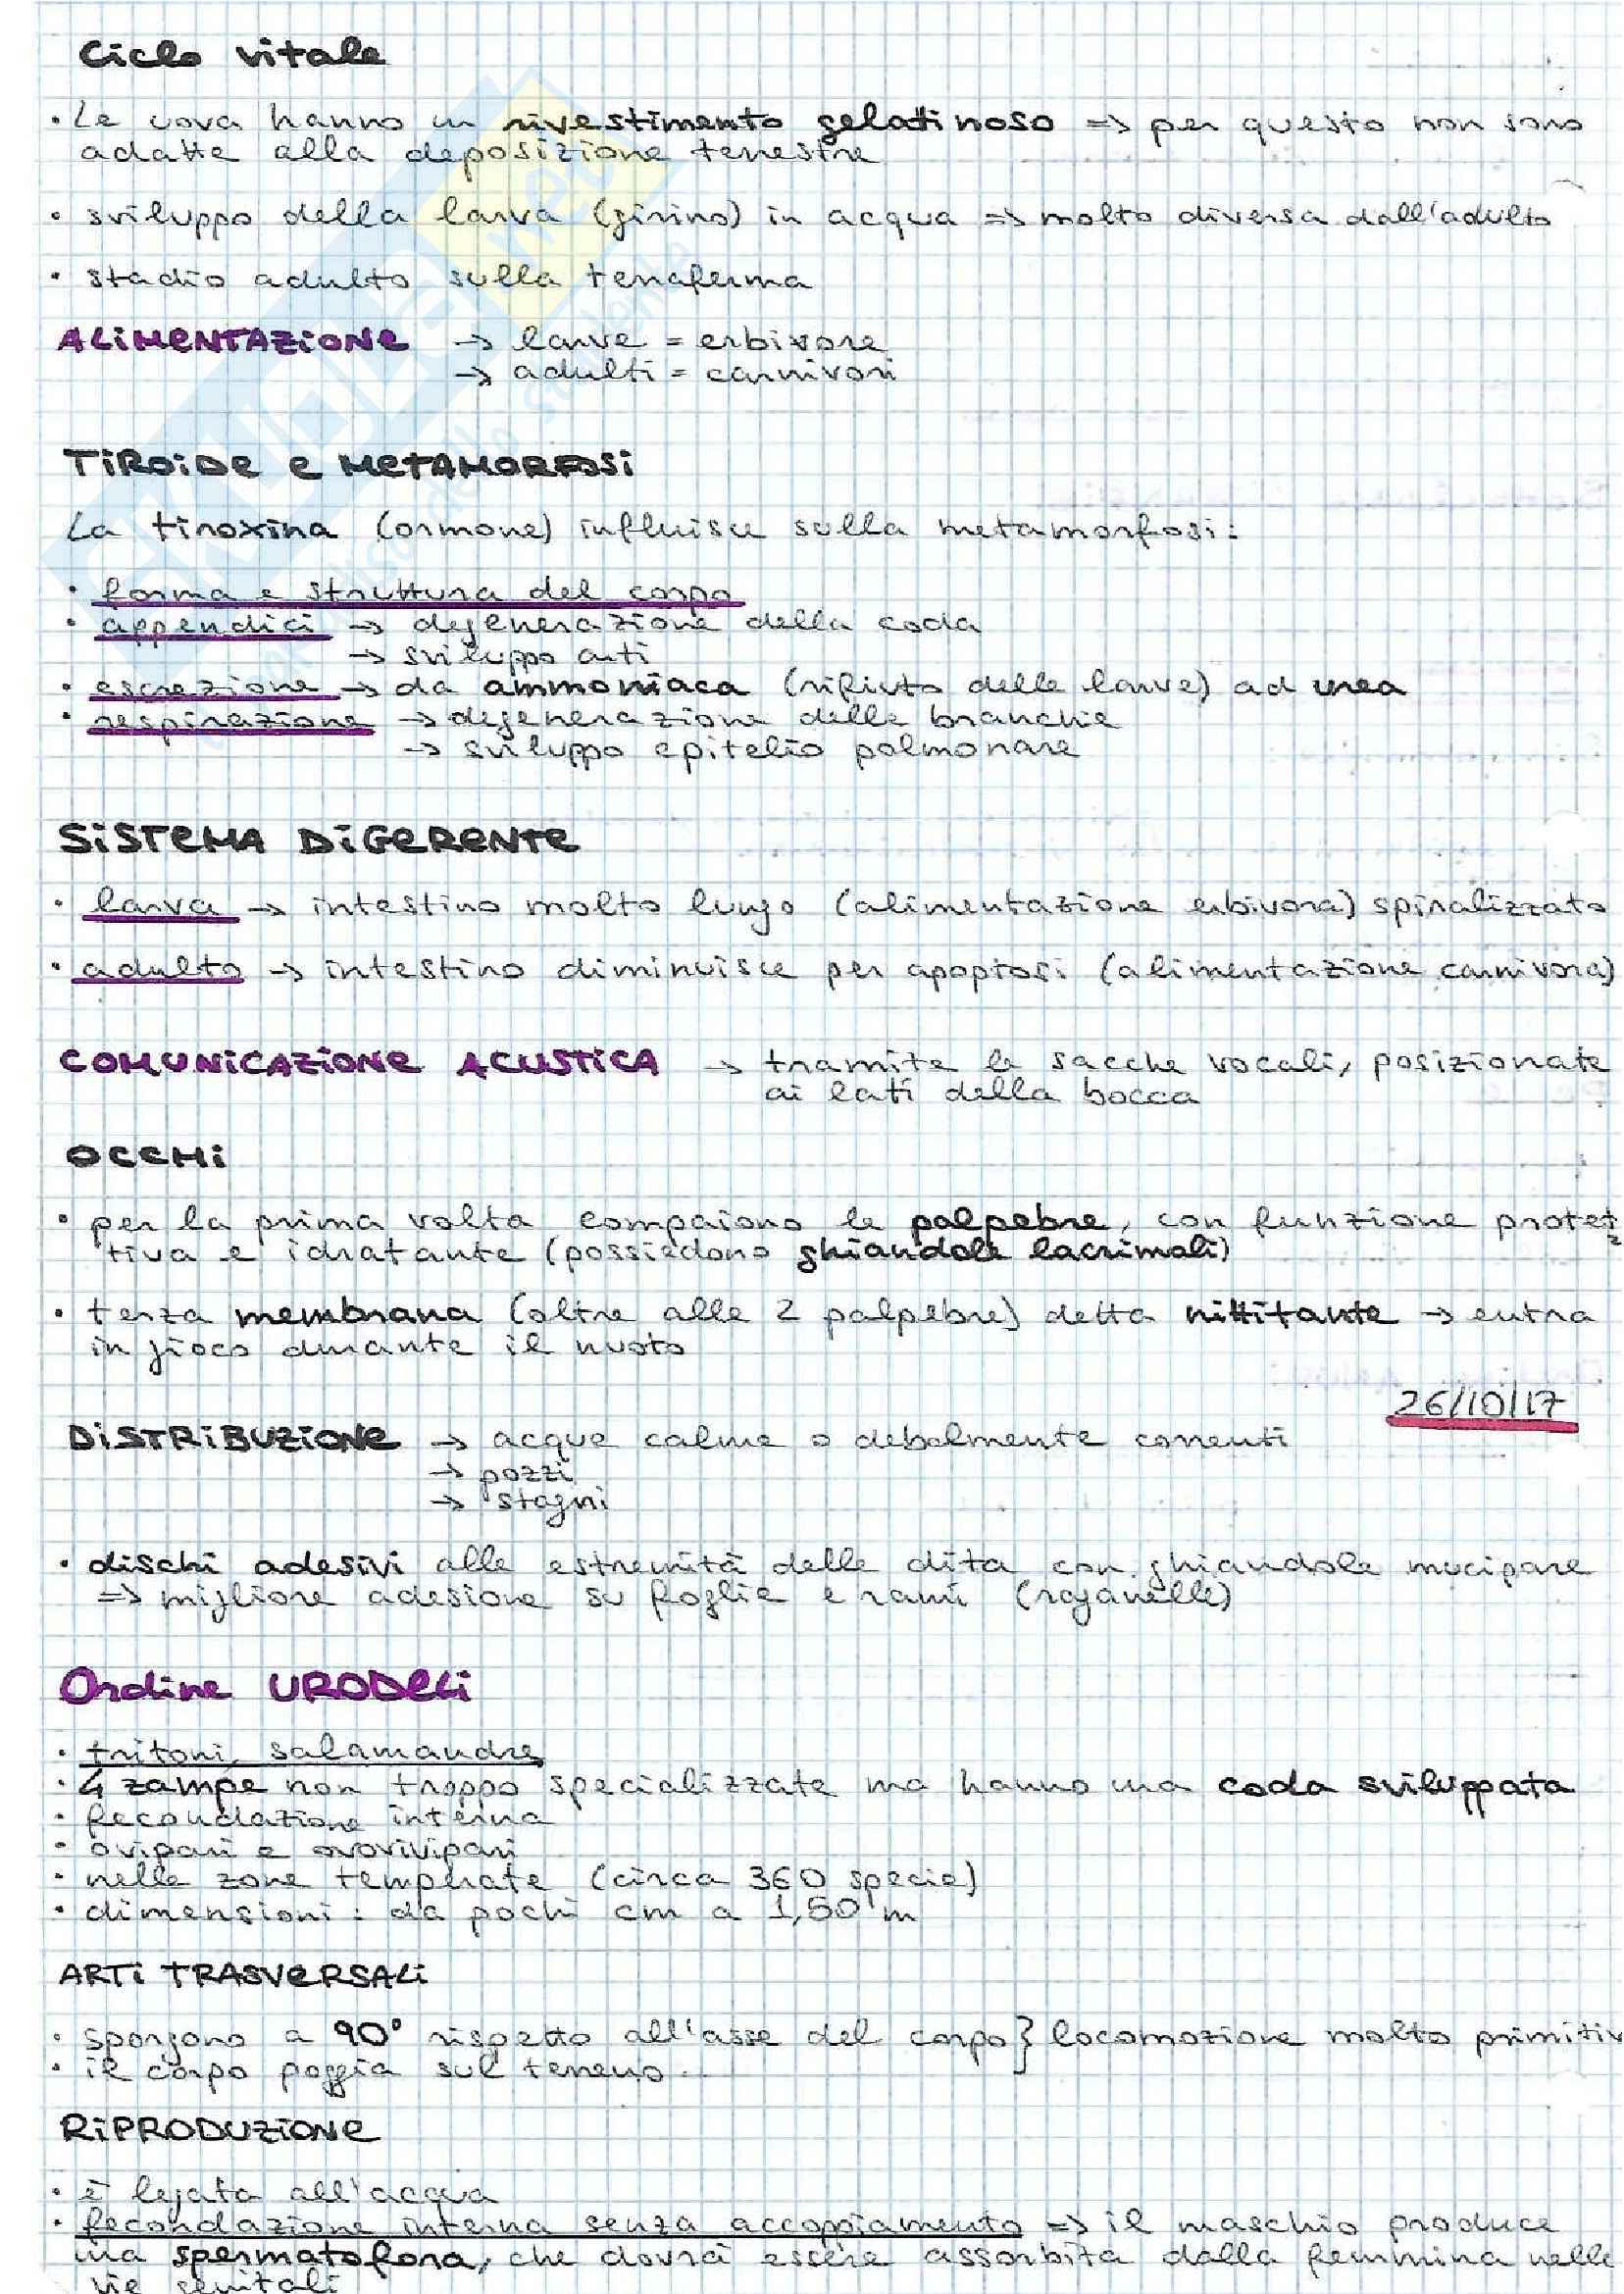 Ciclo vitale
• Le uova hanno un rivestimento gelatinoso => per questo non sono
adatte alla deposizione terrestre
• sviluppo della larva (girino) in acqua => molto diversa dall'adulto
• stadio adulto sulla terraferma
ALIMENTAZIONE → larve = erbivore
→ adulti = carnivori
TIROIDE E METAMORFOSI
La tiroxina (ormone) influisce sulla metamorfosi:
• forma e struttura del corpo
• appendici → degenerazione della coda
→ sviluppo arti
• escrezione → da ammoniaca (rifiuto delle larve) ad urea
• respirazione → degenerazione delle branchie
→ sviluppo epitelio polmonare
SISTEMA DIGERENTE
• larva → intestino molto lungo (alimentazione erbivora) spiralizzato
• adulto → intestino diminuisce per apoptosi (alimentazione carnivora)
COMUNICAZIONE ACUSTICA → tramite le sacche vocali, posizionate
ai lati della bocca
OCCHI
• per la prima volta compaiono le palpebre, con funzione protet
tiva e idratante (possiedono ghiandole lacrimali)
• terza membrana (oltre alle 2 palpebre) detta nittitante → entra
in gioco durante il nuoto
26/10/17
DISTRIBUZIONE → acque calme o debolmente correnti
→ pozzi
→ stagni
• dischi adesivi alle estremità delle dita con ghiandole mucipare
=> migliore adesione su foglie e rami (raganelle)
Ordine URODELI
• tritoni, salamandre
• 4 zampe non troppo specializzate ma hanno una coda sviluppata
• fecondazione interna
• ovipari e ovovivipari
• nelle zone temperate (circa 360 specie)
• dimensioni: da pochi cm a 1,50 m
ARTI TRASVERSALI
• sporgono a 90° rispetto all'asse del corpo } locomozione molto primitiv
• il corpo poggia sul terreno
RIPRODUZIONE
• è legata all'acqua
• fecondazione interna senza accoppiamento => il maschio produce
una spermatofora, che dovrà essere assorbita dalla femmina nelle
vie genitali